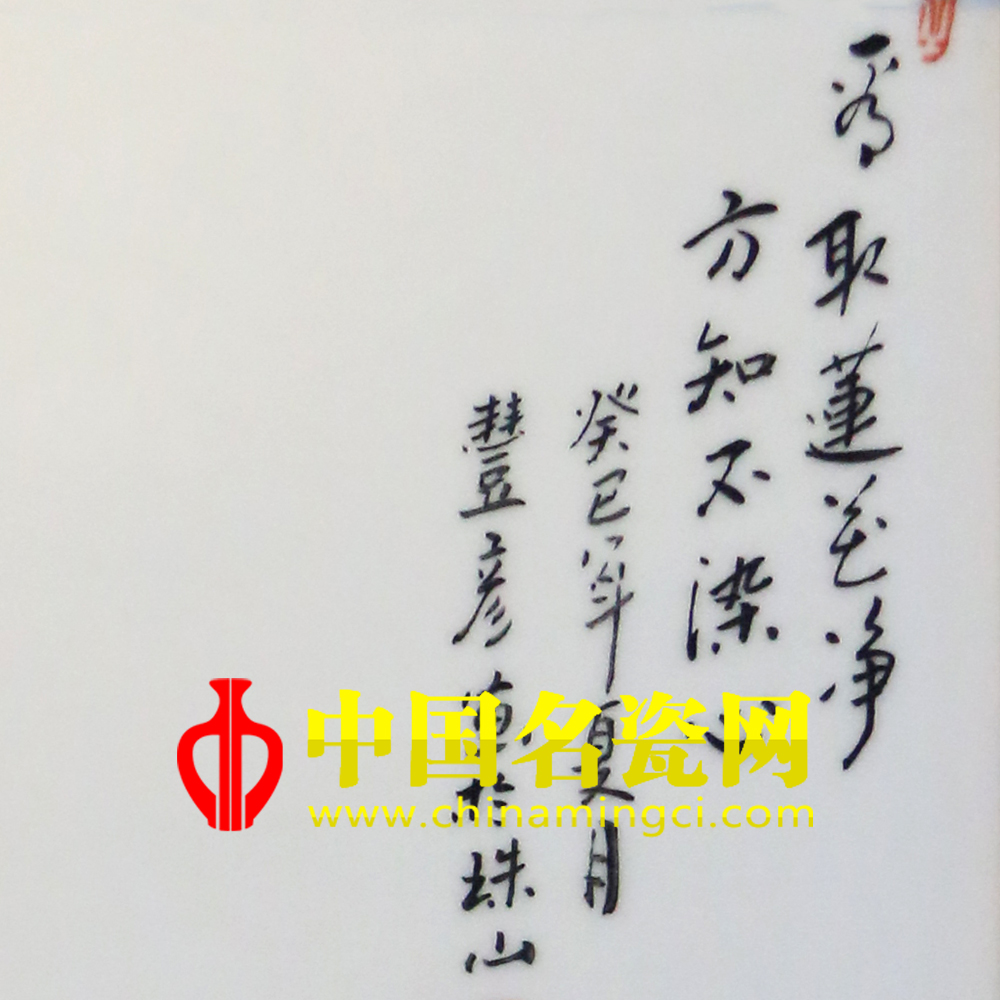 看取蓮花净
方知不染心
癸巳年夏月
豐彦於珠山
中国名瓷网
www.chinamingci.com